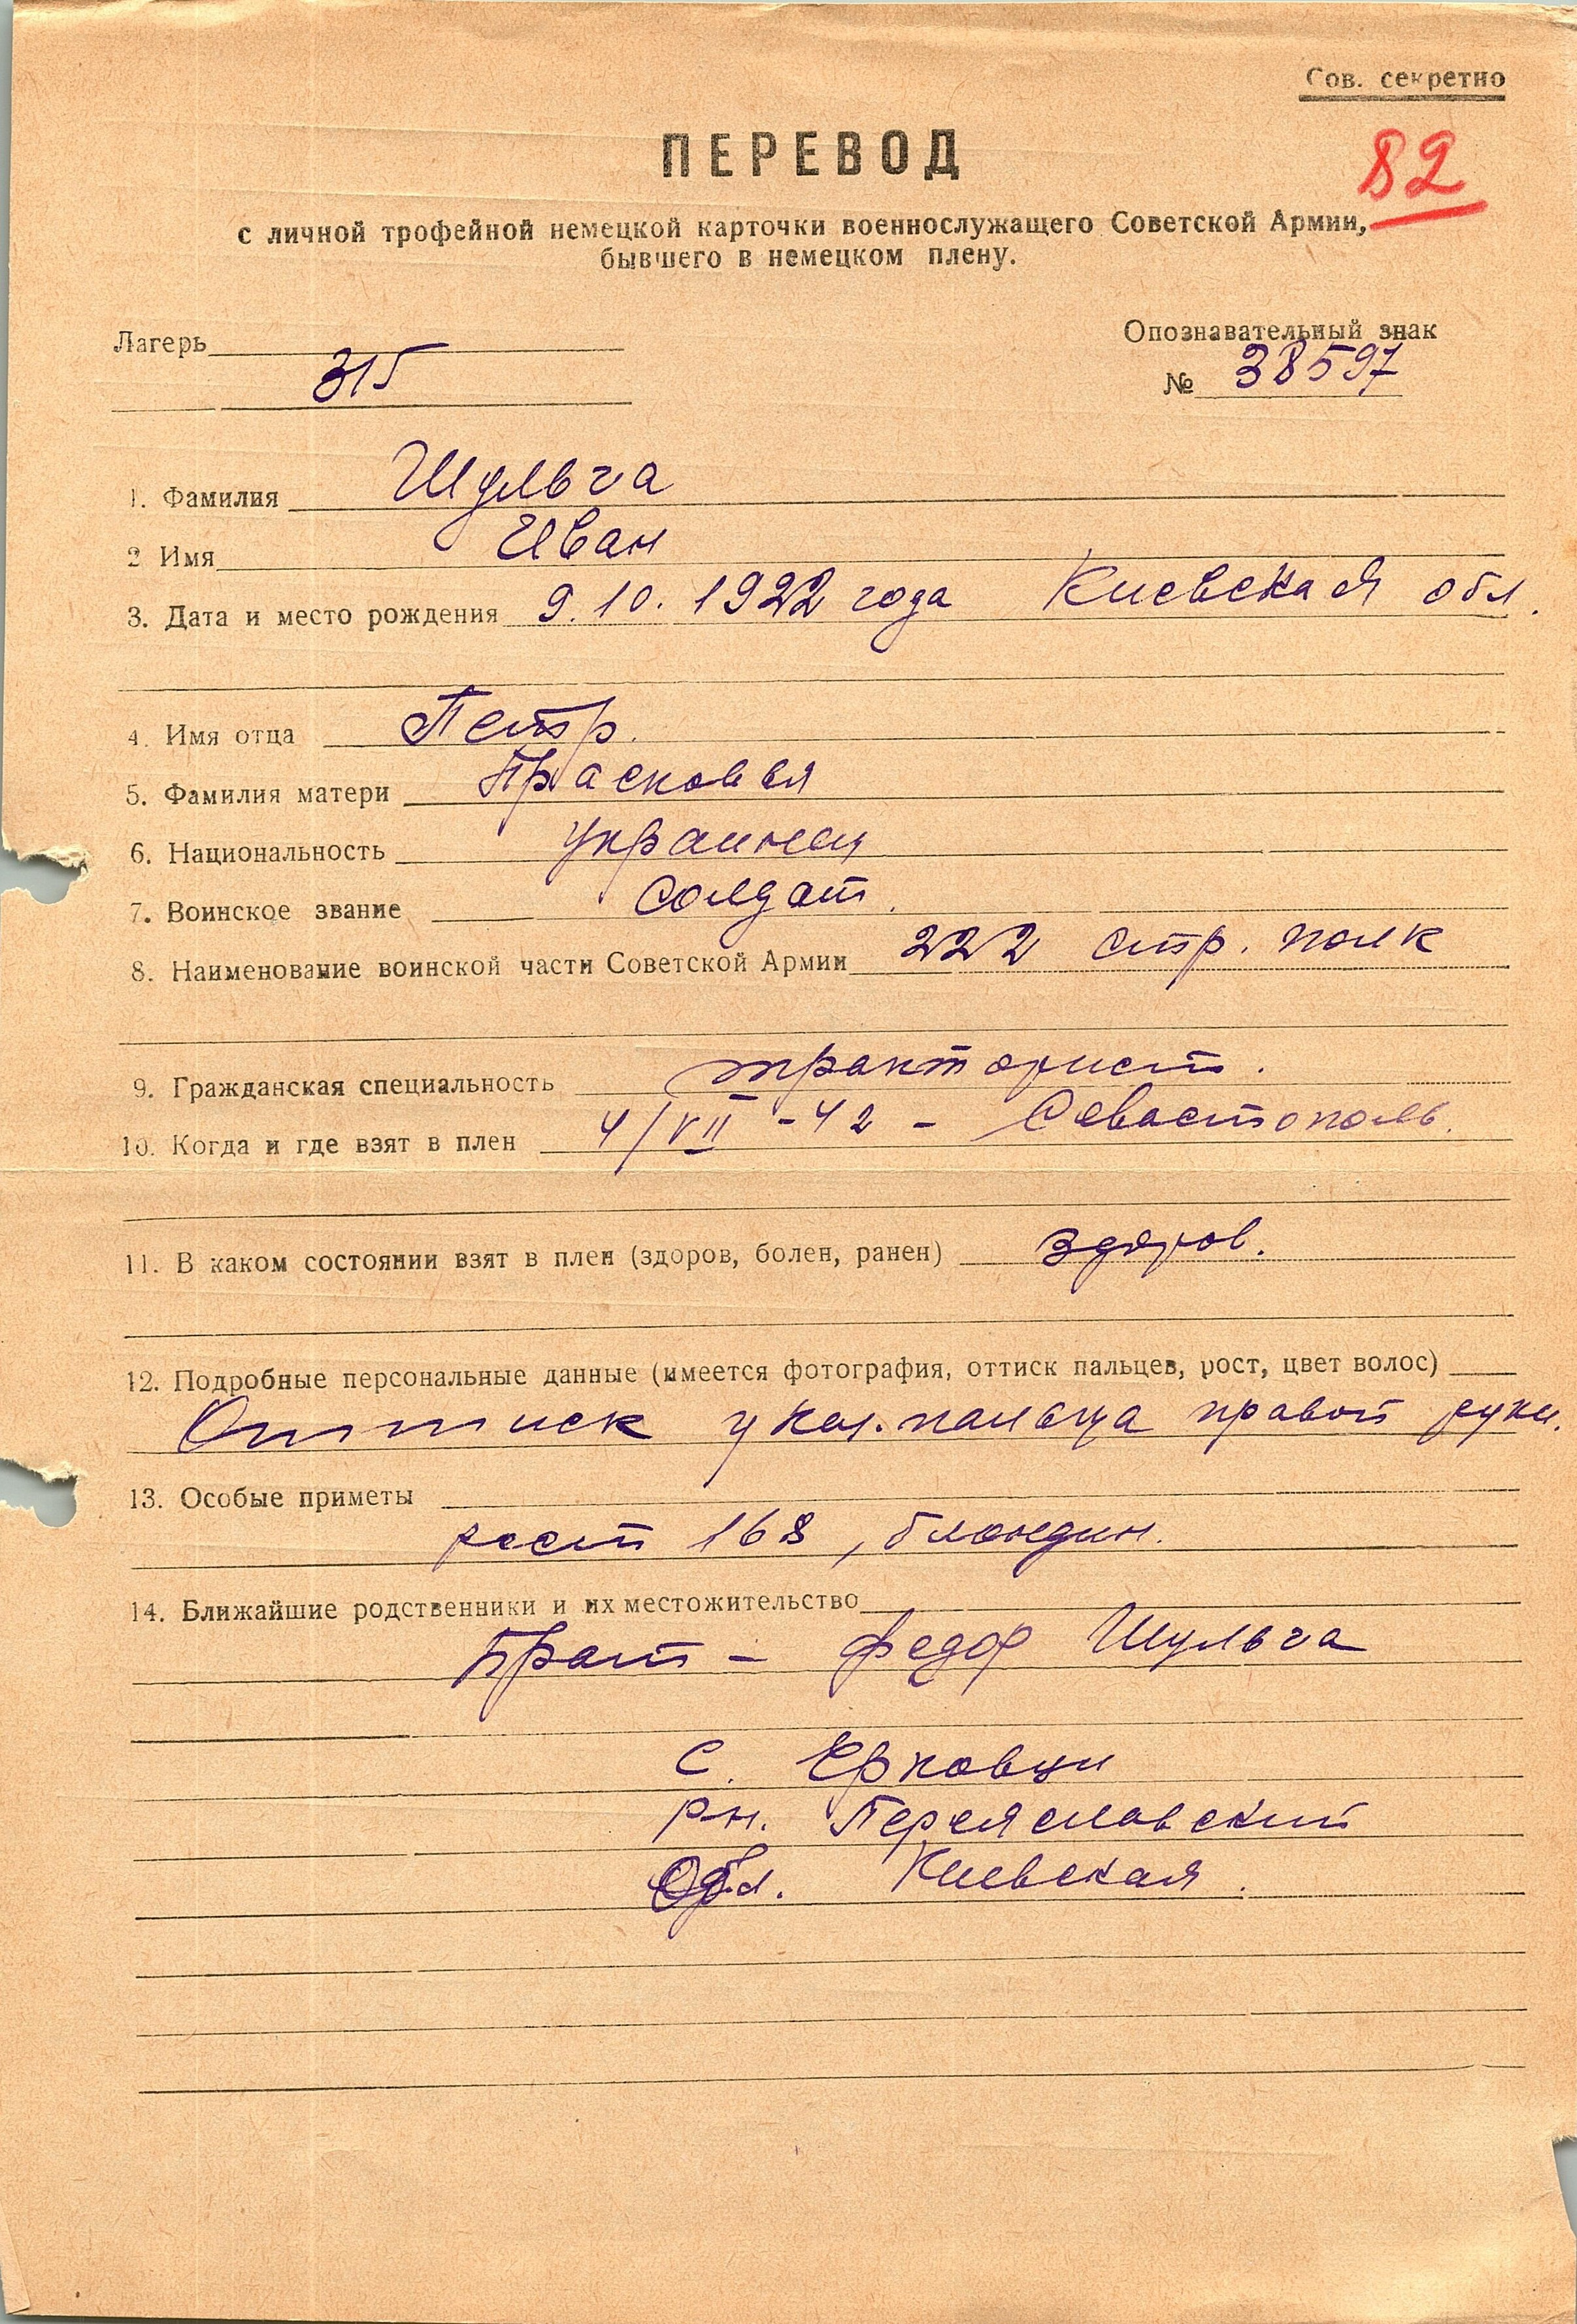 Сов. секретно
82
ПЕРЕВОД
с личной трофейной немецкой карточки военнослужащего Советской Армии,
бывшего в немецком плену.
Лагерь
315
Опознавательный знак
№ 38597
1. Фамилия Шульга
2 Имя Иван
3. Дата и место рождения 9.10.1922 года Киевская обл.
4. Имя отца Петр.
5. Фамилия матери Прасковья
6. Национальность украинец
7. Воинское звание Солдат.
8. Наименование воинской части Советской Армии 222 стр. полк
9. Гражданская специальность тракторист.
10. Когда и где взят в плен 4/VII-42 - Севастополь.
11. В каком состоянии взят в плен (здоров, болен, ранен) здоров.
12. Подробные персональные данные (имеется фотография, оттиск пальцев, рост, цвет волос)
Оттиск указ. пальца правой руки.
13. Особые приметы
рост 168, блондин.
14. Ближайшие родственники и их местожительство
Брат - Федор Шульга
с. Ерковци
р-н. Переяславский
Обл. Киевская.